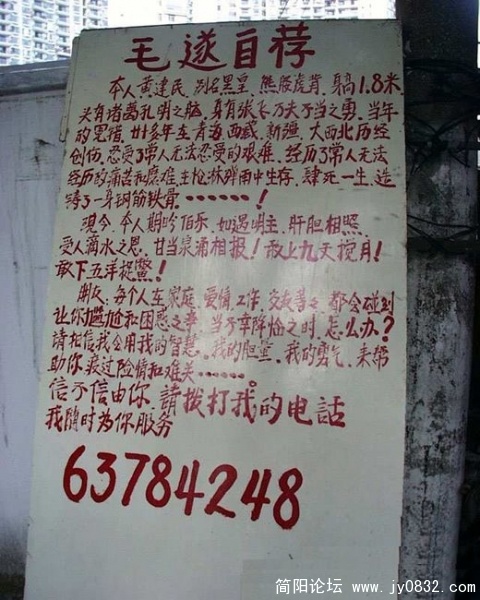 毛遂自荐
本人黄建民，别名黑皇，熊腰虎背，身高1.8米
头有诸葛孔明之脑，身有张飞万夫于当之勇，当年
的冤猎，廿多年在青海西藏，新疆，大西北历经
创伤，忍受了常人无法忍受的艰难，经历了常人无法
经历的痛苦和磨难，主枪林弹雨中生存，肆死一生，造
铸了一身钢筋铁骨……！
现今，本人期吟伯乐，如遇明主，肝胆相照，
受人滴水之恩，甘当泉涌相报！敢上九天搅月！
敢下五洋捉鳖！
朋友，每个人在家庭，爱情，工作，交友等々都会碰到
让你尴尬和困惑之事，当不幸降临之时，怎么办？
请相信我会用我的智慧，我的胆量，我的勇气，来帮
助你渡过险情和难关……。
信不信由你，請拨打我的电話
我随时为你服务
63784248
简阳论坛 www.jy0832.com